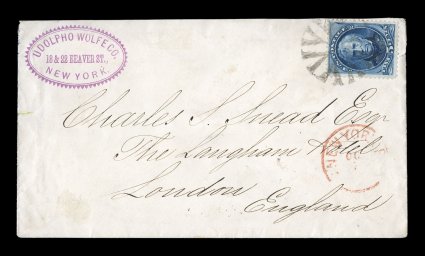 UDOLPHO WOLFE CO.
18 & 22 BEAVER ST.,
NEW YORK.
Charles S. Snead Esq
The Langham Hotel
London
England
NEW YORK